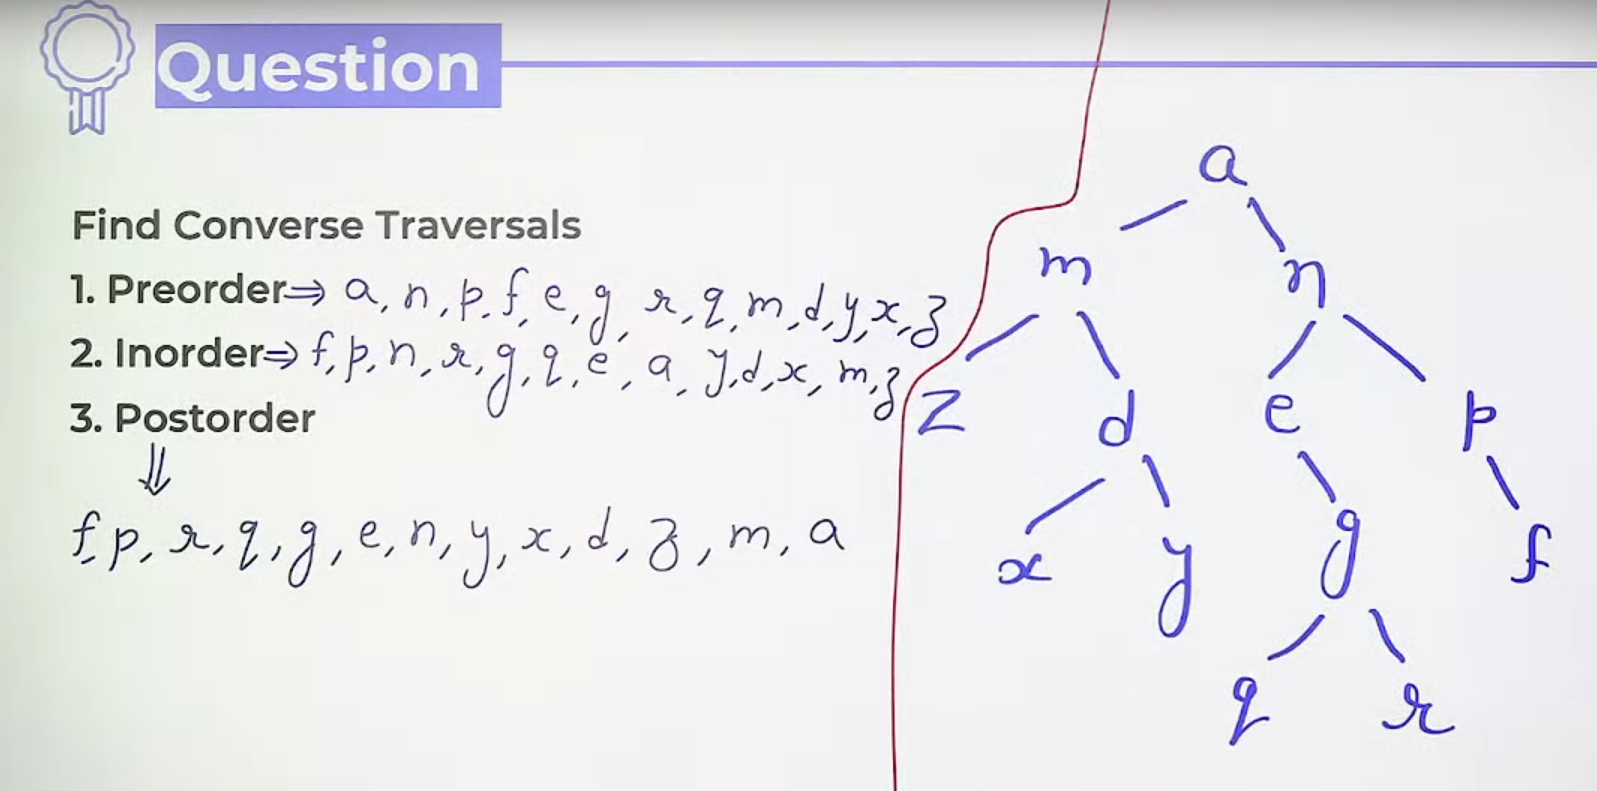 Question
Find Converse Traversals
1. Preorder⇒ a, n, p, f, e, g, r, q, m, d, y, x, z
2. Inorder⇒ f, p, n, r, g, q, e, a, y, d, x, m, z
3. Postorder
⇓
f, p, r, q, g, e, n, y, x, d, z, m, a
a
m n
z d e p
x y g f
q r